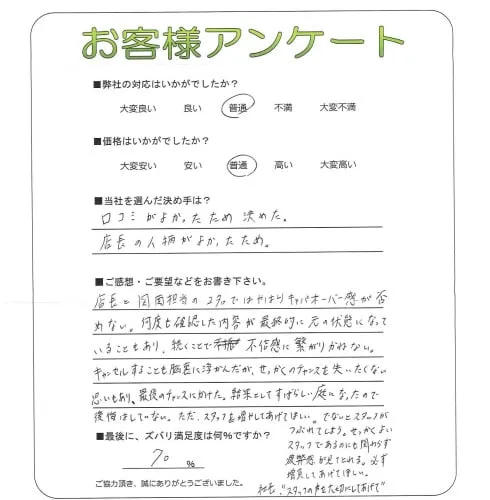 お客様アンケート
■弊社の対応はいかがでしたか？
大変良い 良い 普通 不満 大変不満
■価格はいかがでしたか？
大変安い 安い 普通 高い 大変高い
■当社を選んだ決め手は？
口コミがよかったため決めた。
店長の人柄がよかったため。
■ご感想・ご要望などをお書き下さい。
店長と図面担当の2名ではやはりキャパオーバー感が否
めない。何度も確認した内容が最終的に元の状態になって
いることもあり、続くことで不信感に繋がりかねない。
キャンセルすることも脳裏に浮かんだが、せっかくのチャンスを失いたくない
思いもあり、最後のチャンスにかけた。結果としてすばらしい庭になったので
後悔はしていない。ただ、スタッフを増やしてあげてほしい。でないとスタッフが
つぶれてしまう。せっかくよい
スタッフであるのにも関わらず
疲弊感が見てとれる。必ず
増員してあげてほしい。
社長、"スタッフの声を大切にしてあげて"
■最後に、ズバリ満足度は何%ですか？
70 %
ご協力頂き、誠にありがとうございました。